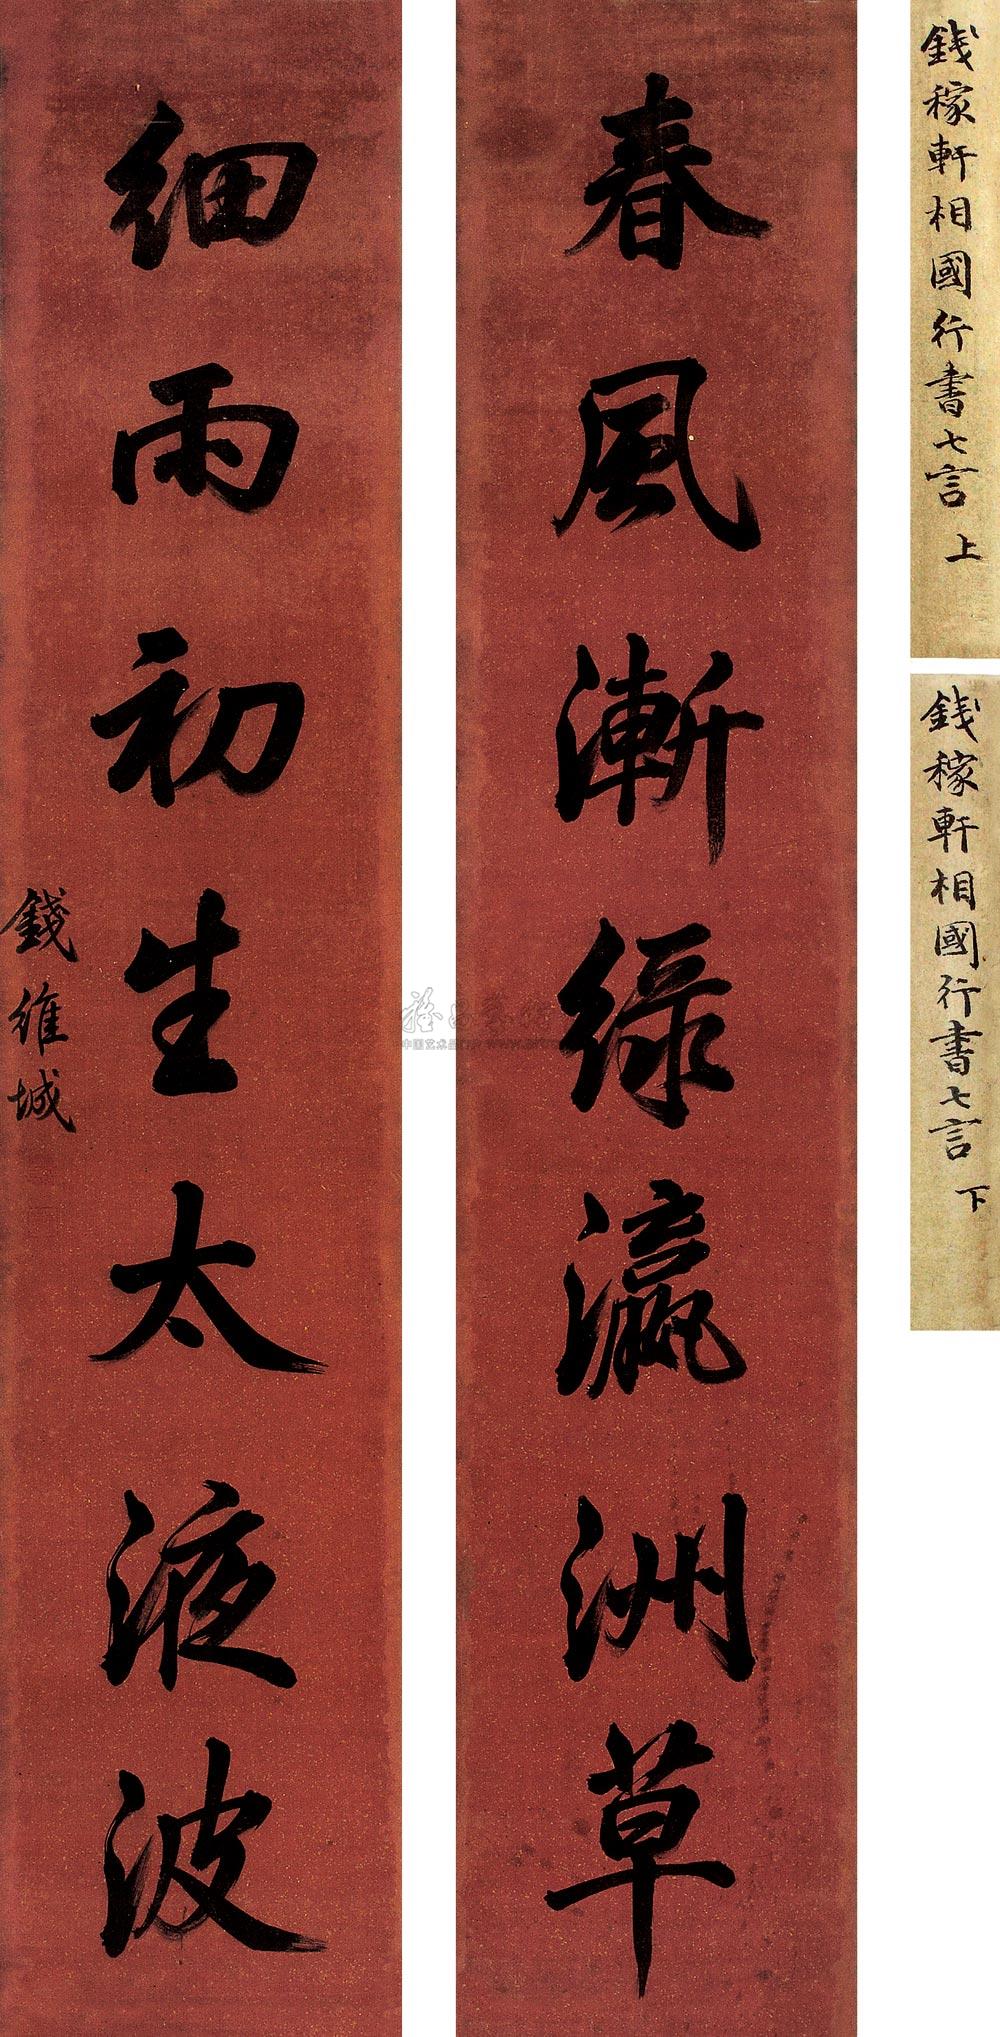 錢稼軒相國行書七言 上
錢稼軒相國行書七言 下
春風漸綠瀛洲草
細雨初生太液波
錢維城